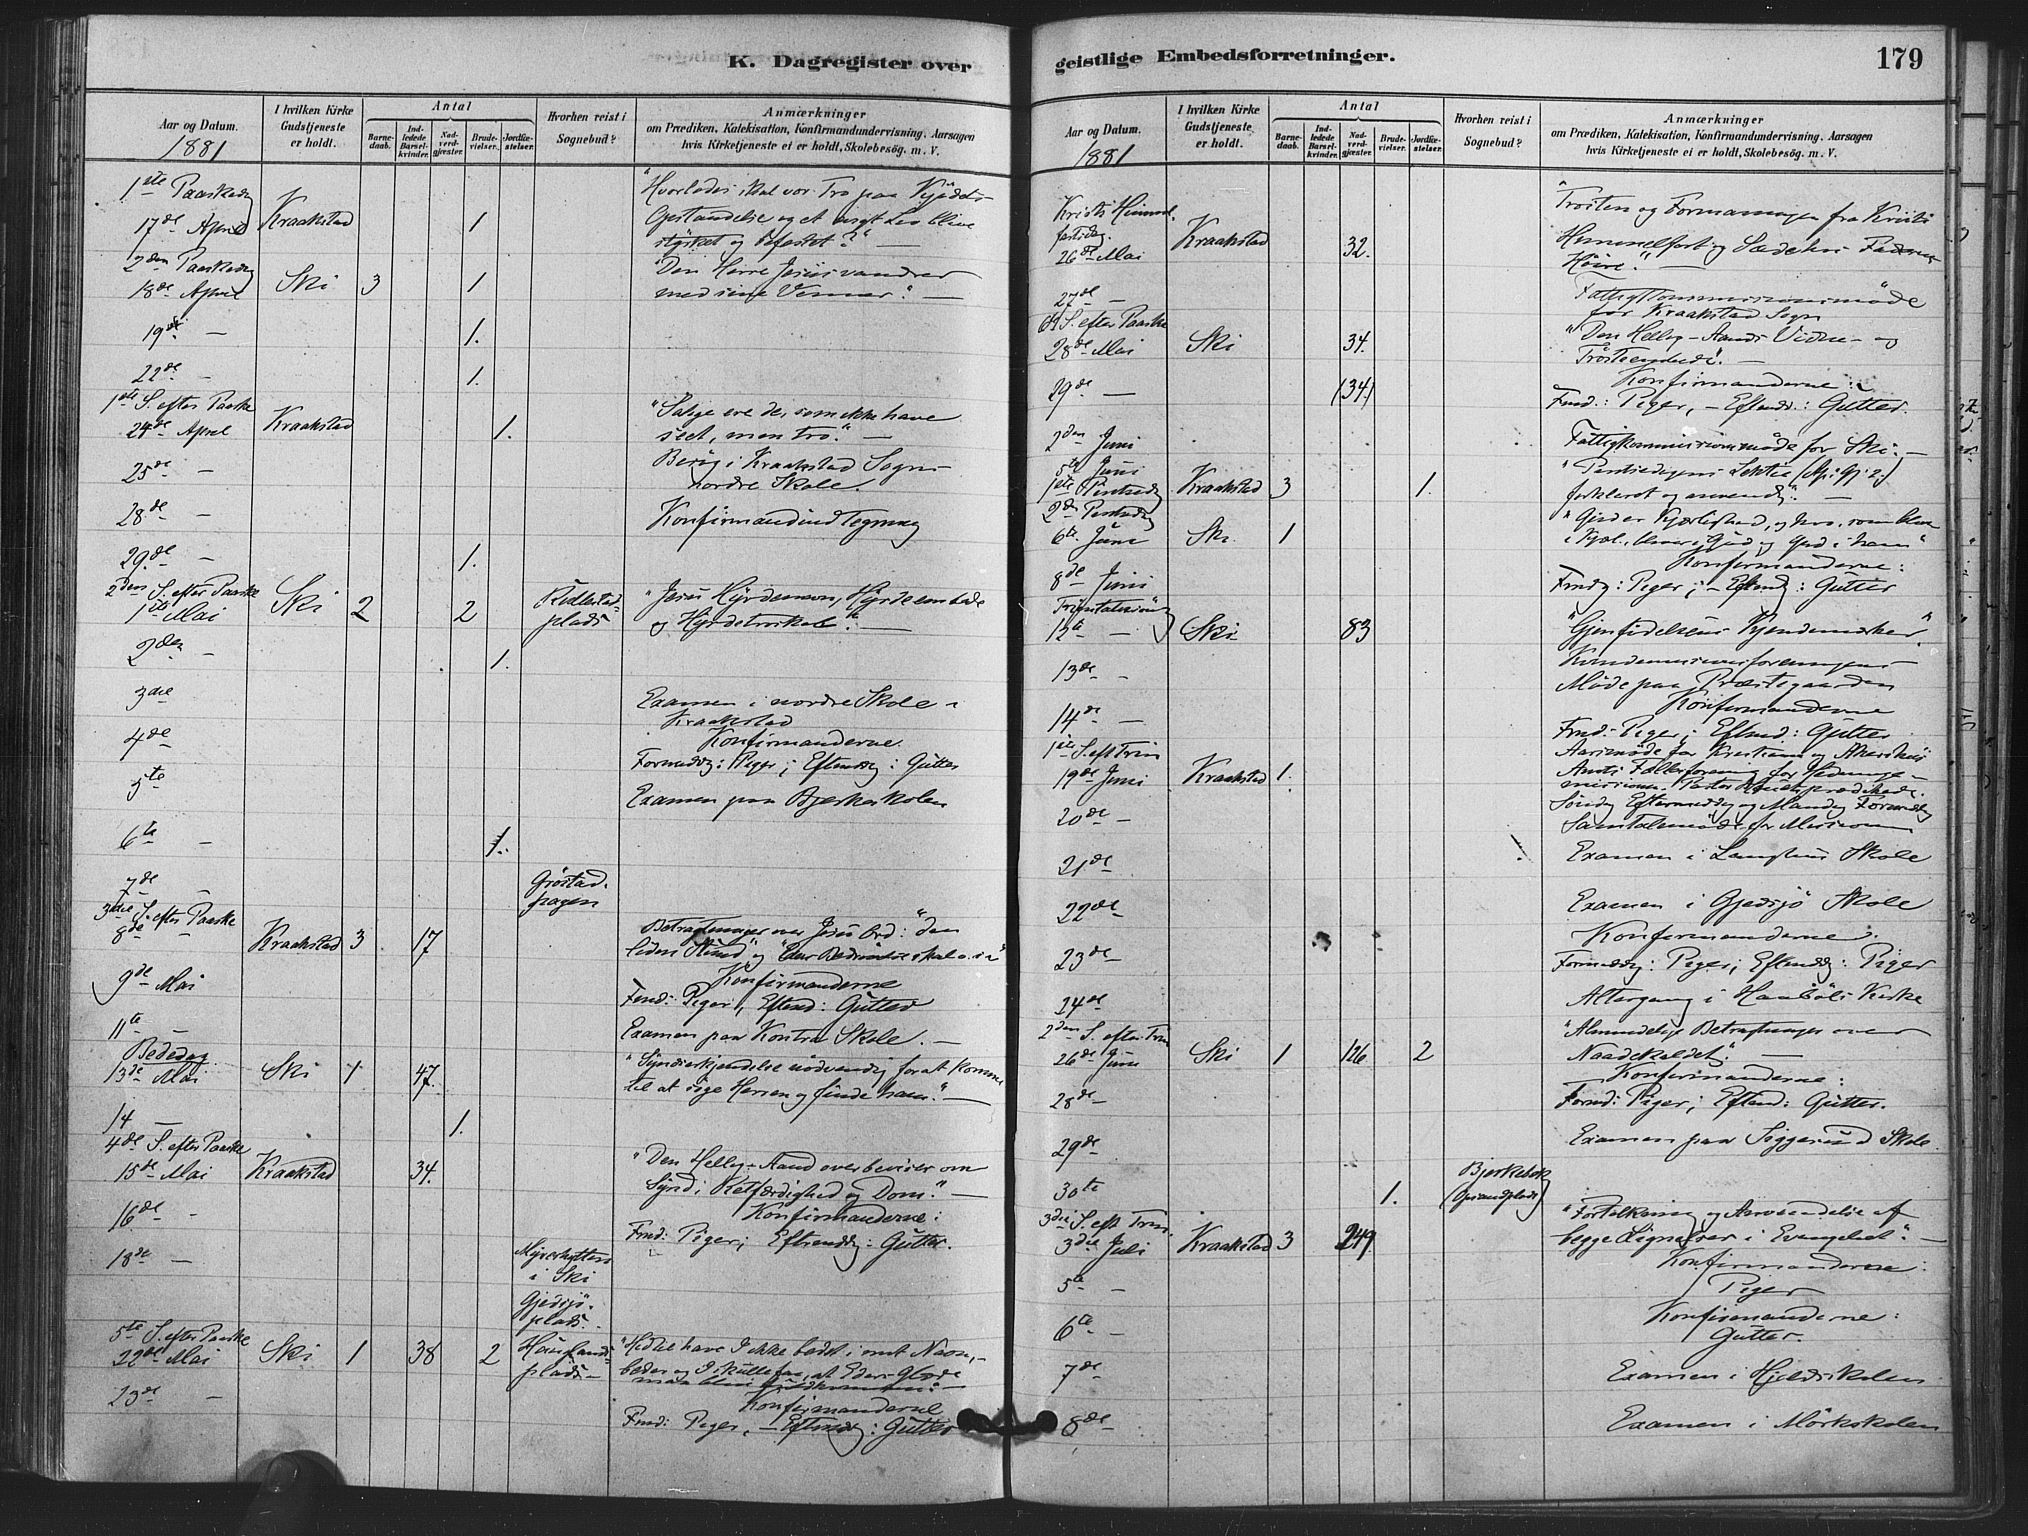 K. Dagregister over
Aar og Datum.
1881
I hvilken Kirke Gudstjeneste er holdt.
Antal
Barnedaab.
Indledede Barselkvinder.
Nadverdgjæster.
Brudevielser.
Jordfæstelser.
Hvorhen reist i Sognebud?
Anmærkninger
om Prædiken, Katekisation, Konfirmandundervisning, Aarsagen
hvis Kirketjeneste ei er holdt, Skolebesøg. m. V.
1ste Paaskedag
17de April Kraakstad 1. "Hvorledes skal vor Tro paa
Opstandelse og et evigt Liv blive
styrket og befæstet?" —
2den Paaskedag
18de April Ski 3 1. "Den Herre Jesus vandrer
med sine Venner." —
19de — 1.
22de — 1.
1ste S. efter Paaske
24de April Kraakstad 1. "Salige ere de, som ikke have
seet, men tro." —
25de — Besøg i Kraakstad Sogns
nordre Skole.
28de — Konfirmandindtegning
29de — 1.
2den S. efter Paaske
1ste Mai Ski 2 2 plads "Jesu Hyrdenavn, Hyrdeembede
og Hyrdetroskab." —
2den — 1.
3die Examen i nordre Skole i
Kraakstad
4de Konfirmanderne.
Formiddg: Piger; Eftmdg: Gutter
5te Examen paa Bjerkeskolen
6te — 1.
7de — Grøstad-
hagen
3die S. efter Paaske
8de — Kraakstad 3 17 Betragtninger over Jesu Ord: "den
liden Stund" og
9de Mai Konfirmanderne
Fmd: Piger, Eftmd: Gutter
11te — Examen paa Kontra Skole. —
Bededag
13de Mai Ski 1 47. "Syndserkjendelse nødvendig for at komme
til at søge Herren og finde ham." —
14 — 1.
4de S. efter Paaske
15de Mai Kraakstad 34. "Den Hellig-Aand overbeviser om
Synd, Retfærdighed og Dom." —
16de — Konfirmanderne:
Fmd: Piger; Eftermdg: Gutter.
18de —
i Ski
Gjedsjø-
plads.
5te S. efter Paaske
22de Mai Ski 1 38 2 Hauglands-
plads — "Hidtil have I ikke bedet i mit Navn, —
beder og I skulle faa, at Eders Glæde
maa blive fuldkommen." —
23de — Konfirmanderne
Fmd: Piger, — Eftmdg: Gutter
geistlige Embedsforretninger.
179
Aar og Datum.
1881
I hvilken Kirke Gudstjeneste er holdt.
Antal
Barnedaab.
Indledede Barselkvinder.
Nadverdgjæster.
Brudevielser.
Jordfæstelser.
Hvorhen reist i Sognebud?
Anmærkninger
om Prædiken, Katekisation, Konfirmandundervisning, Aarsagen
hvis Kirketjeneste ei er holdt, Skolebesøg. m. V.
Kristi Himmel-
fartsdag
26de Mai Kraakstad 32. "Trøsten og Formaningen fra Kristi
Himmelfart og Sædet hos Faderens
Høire." —
27de — Fattigkommissionsmøde
for Kraakstad Sogn
6te S. efter Paaske
28de Mai Ski 34. "Den Hellig-Aands Vidne- og
Trøsteembede". —
29de — (34) Konfirmanderne:
Fmd.: Piger, — Eftmd: Gutter.
2den Juni Fattigkommissionsmøde for Ski. —
5te Juni
1ste Pintsedag Kraakstad 3 1. "Pintsedagens Lektie (Ap. Gj. 2)
forklaret og anvendt". —
2den Pintsedag
6te Juni Ski. 1 "Gud er Kjærlighed, og hvo, som bliver
i Kjæl., bliver i Gud, og Gud i ham"
8de Juni Konfirmanderne:
Fmdg: Piger; — Eftmdg: Gutter
Trinitatissøndag
12te — Ski 83 "Gjenfødelsens Kjendemærker"
13de — Kvindemissionsforeningens
Møde paa Præstegaarden
14de — Konfirmanderne
Fmd: Piger; Eftmd: Gutter
1ste S. eft Trin
19de Juni Kraakstad 1. Aarsmøde for Kristiania og Akershus
Amts Fællesforening for Hedninge-
missionen. Pastor
Søndag Eftermiddg og Mandag Formiddg
20de — Samtalemøde for Missionen
21de Examen i Langhus Skole
22de Examen i Gjedsjø Skole
23de — Konfirmanderne.
Formiddg: Piger; Eftmdg: Piger
24de Altergang i Haabøls Kirke
2den S. efter Trin
26de Juni Ski 1 126. 2 "Almindelige Betragtninger over
Naadekaldet". —
28de — Konfirmanderne:
Formd: Piger; Eftmd: Gutter.
29de Examen paa Siggerud Skole.
30te 1. Bjerkebæk
3die S. eft Trin.
3die Juli Kraakstad 3 249. "Fortolkning og Anvendelse af
begge Lignelser i Evangeliet." —
5te — Konfirmanderne:
Piger
6te — Konfirmanderne:
Gutter.
7de — Examen i Hjeldsskolen
8de — Examen i Mørkskolen